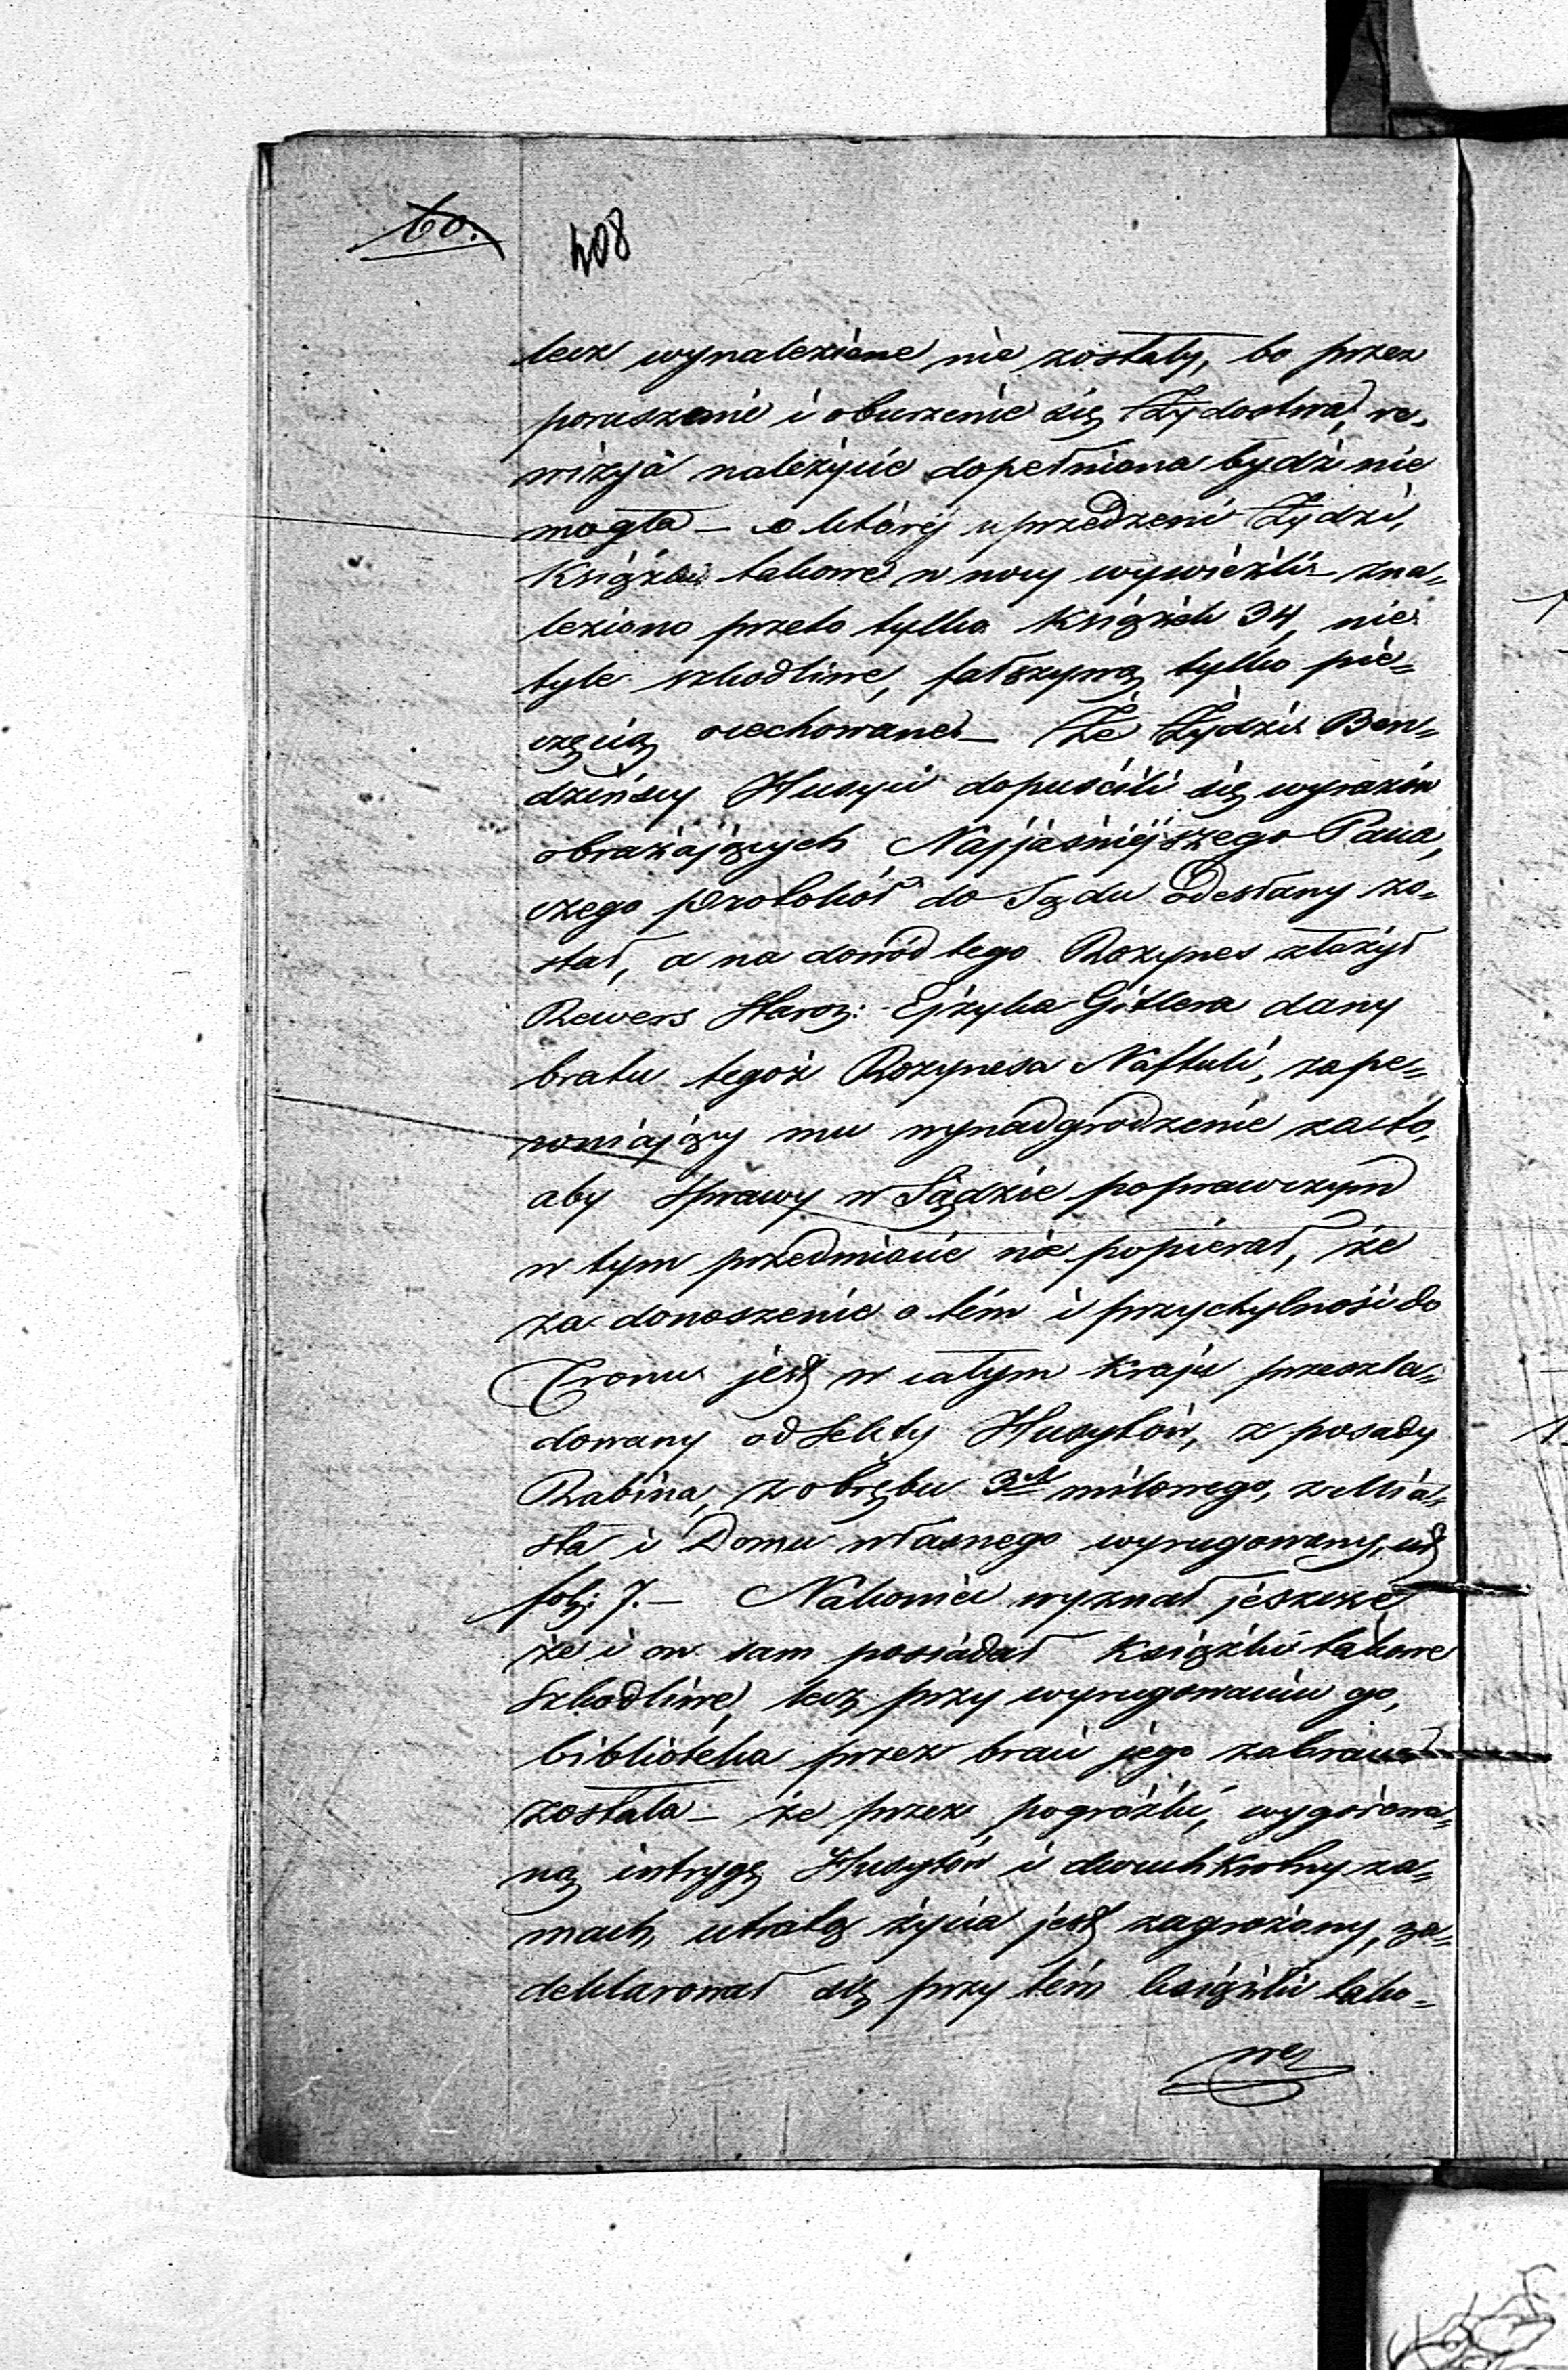 60.
408
lecz wynalezione nie zostały, bo przez
poruszenie i oburzenie się Żydostwa, re-
wizyja należycie dopełniona bydź nie
mogła – o której uprzedzeni Żydzi,
Książki takowe w nocy wywieźli – zna-
leziono przeto tylko Książek 34, nie
tyle szkodliwe, fałszywą tylko pie-
częcią ocechowane – Że Żydzi Ben-
dzińscy Husyci dopuścili się wyrazów
obrażających Najjaśniejszego Pana,
czego Protokół do Sądu odesłany zo-
stał, a na dowód tego Rozynes złożył
Rewers Staroz: Ejzyka Gitlera dany
bratu tegoż Rozynesa Naftuli, zape-
wniający mu wynadgrodzenie za to,
aby sprawy w Sądzie poprawczym
w tym przedmiocie nie popierał, że
za donoszenie o tém i przychylność do
Tronu jest w całym Kraju prześla-
dowany od Sekty Husytów, z posady
Rabina, z obrębu 3ch milowego, z Mia-
sta i Domu własnego wyrugowany, ut
fol: 7. – Nakoniec wyznał jeszcze
że i on sam posiadał Książki takowe
szkodliwe, lecz przy wyrugowaniu go,
biblioteka przez braci jego zabraną
została – że przez pogróżki,
ną intrygę Husytów i dwuchkrotny za-
mach, utratą życia jest zagrożony, za-
deklarował się przy tém książki tako-
we